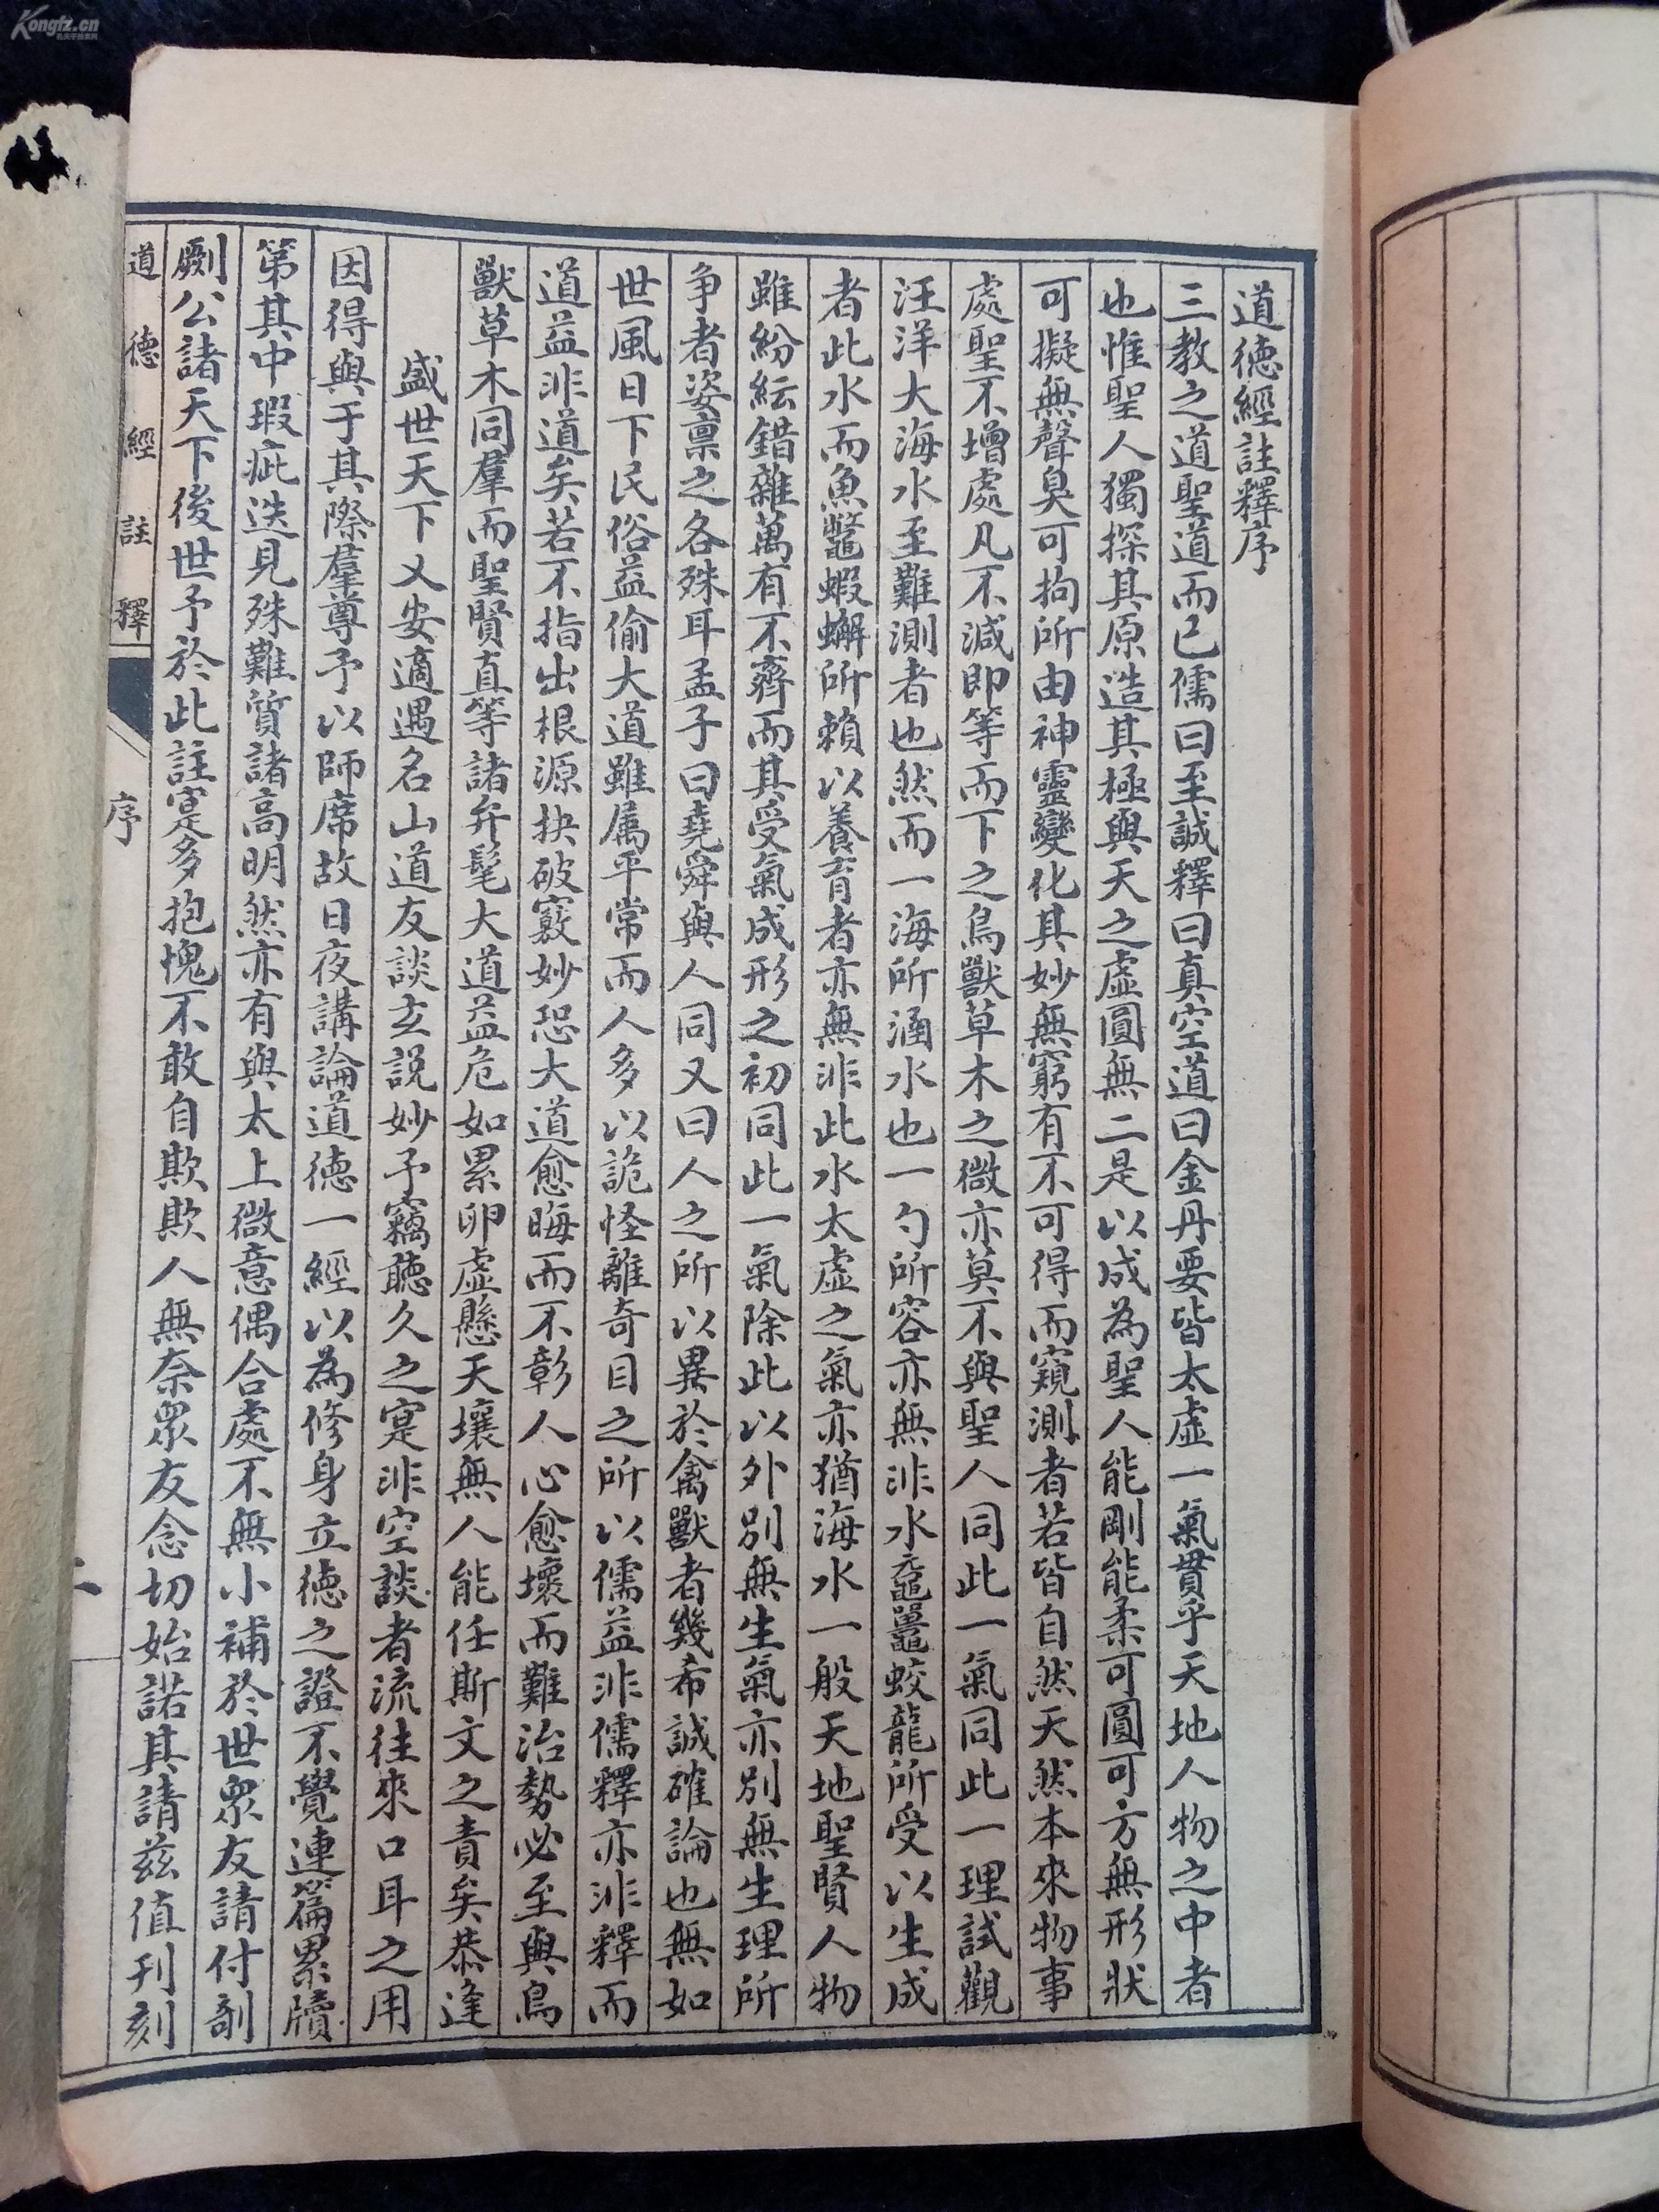 道德經註釋序
三教之道聖道而已儒曰至誠釋曰真空道曰金丹要皆太虛一氣貫乎天地人物之中者
也惟聖人獨探其原造其極與天之虛圓無二是以成為聖人能剛能柔可圓可方無形狀
可擬無聲臭可拘所由神靈變化其妙無窮有不可得而窺測者若皆自然天然本來物事
處聖不增處凡不減即等而下之鳥獸草木之微亦莫不與聖人同此一氣同此一理試觀
汪洋大海水至難測者也然而一海所涵水也一勺所容亦無非水黿鼉蛟龍所受以生成
者此水而魚鼈蝦蠏所賴以養育者亦無非此水太虛之氣亦猶海水一般天地聖賢人物
雖紛紜錯雜萬有不齊而其受氣成形之初同此一氣除此以外別無生氣亦別無生理所
争者姿禀之各殊耳孟子曰堯舜與人同又曰人之所以異於禽獸者幾希誠確論也無如
世風日下民俗益偷大道雖属平常而人多以詭怪離奇目之所以儒益非儒釋亦非釋而
道益非道矣若不指出根源抉破竅妙恐大道愈晦而不彰人心愈壞而難治勢必至與鳥
獸草木同羣而聖賢真等諸弁髦大道益危如累卵虛懸天壤無人能任斯文之責矣恭逢
盛世天下乂安適遇名山道友談玄説妙予竊聽久之寔非空談者流往來口耳之用
因得與于其際羣尊予以師席故日夜講論道德一經以為修身立德之證不覺連篇累牘
第其中瑕疵迭見殊難質諸高明然亦有與太上微意偶合處不無小補於世眾友請付剞
劂公諸天下後世予於此註寔多抱愧不敢自欺欺人無奈眾友念切始諾其請茲值刊刻
道德經註釋
序
Kongfz.cn